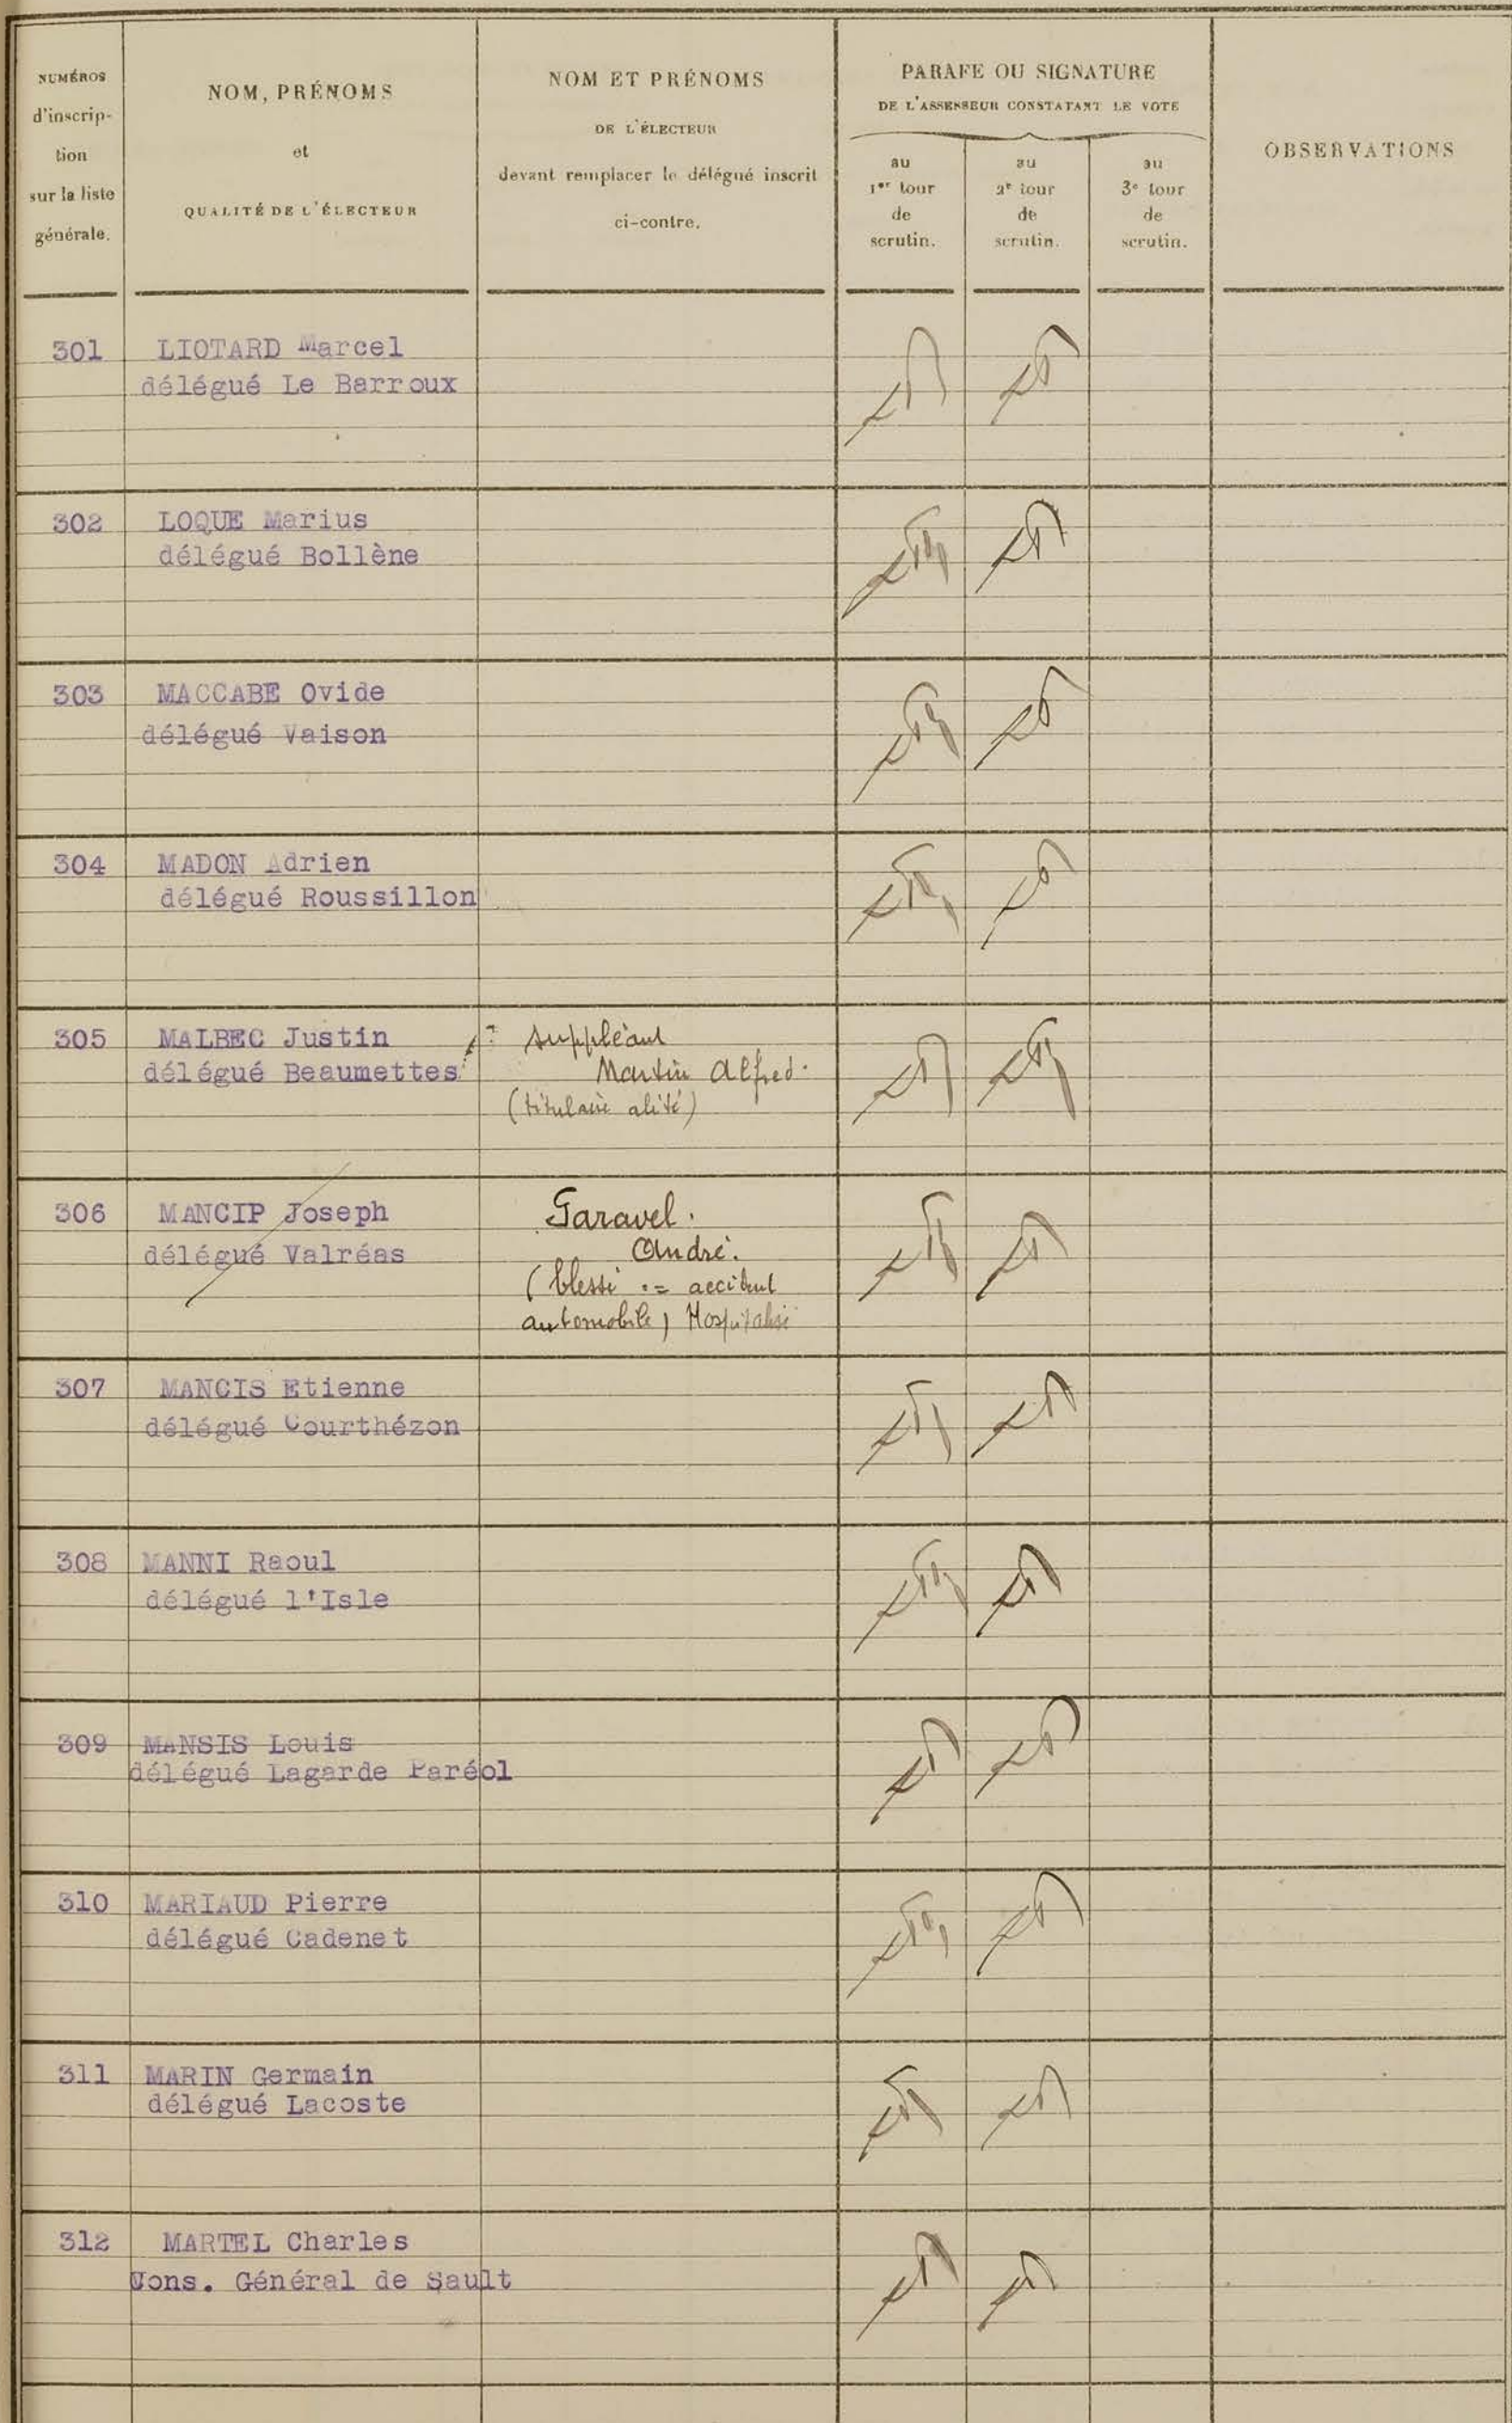 NUMÉROS
d'inscrip-
tion
sur la liste
générale.
NOM, PRÉNOMS
et
QUALITÉ DE L'ÉLECTEUR
NOM ET PRÉNOMS
DE L'ÉLECTEUR
devant remplacer le délégué inscrit
ci-contre.
PARAFE OU SIGNATURE
DE L'ASSESSEUR CONSTATANT LE VOTE
au
1er tour
de
scrutin.
au
2e tour
de
scrutin.
au
3e tour
de
scrutin.
OBSERVATIONS
301 LIOTARD Marcel
délégué Le Barroux
302 LOQUE Marius
délégué Bollène
303 MACCABE Ovide
délégué Vaison
304 MADON Adrien
délégué Roussillon
305 MALBEC Justin
délégué Beaumettes
suppléant
Martin Alfred.
(titulaire alité)
306 MANCIP Joseph
délégué Valréas
Garavel.
André.
(blessé := accident
automobile) Hospitalisé
307 MANCIS Etienne
délégué Courthézon
308 MANNI Raoul
délégué l'Isle
309 MANSIS Louis
délégué Lagarde Paréol
310 MARIAUD Pierre
délégué Cadenet
311 MARIN Germain
délégué Lacoste
312 MARTEL Charles
Cons. Général de Sault